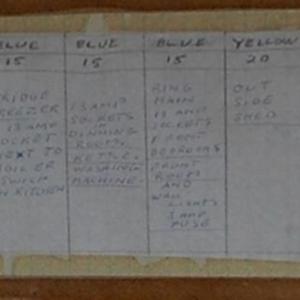 BLUE
15
FRIDGE
FREEZER
13 AMP
SOCKET
NEXT TO
BOILER
SWITCH
IN KITCHEN
BLUE
15
13 AMP
SOCKETS
DINNING
ROOM.
KETTLE.
WASHING
MACHINE.
BLUE
15
RING
MAIN
13 AMP
SOCKETS
FRONT
BEDROOMS
FRONT
ROOM
AND
WALL
LIGHTS
3 AMP
FUSE
YELLOW
20
OUT
SIDE
SHED